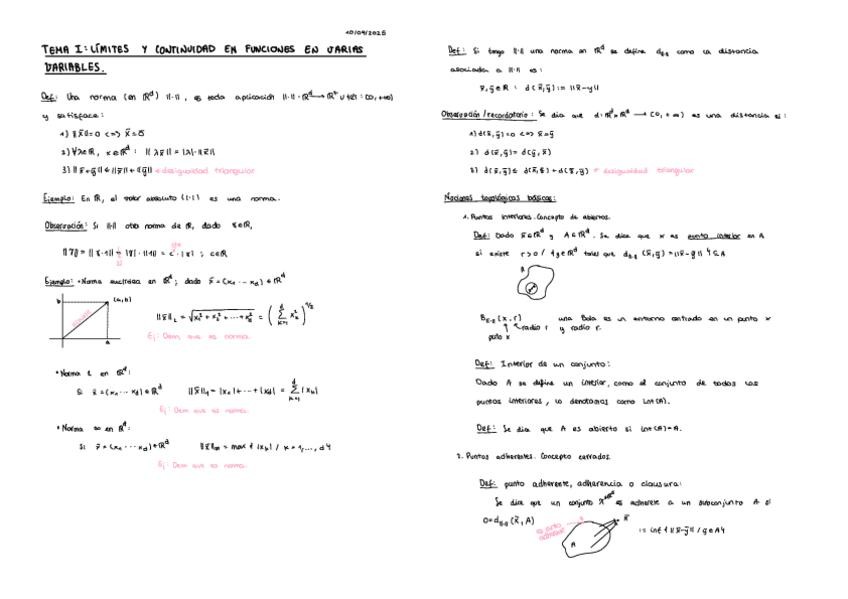 10/09/2025
TEMA I: LÍMITES Y CONTINUIDAD EN FUNCIONES EN VARIAS
VARIABLES.
Def: Una norma (en ℝᵈ) ||·||, es toda aplicación ||·||: ℝᵈ → ℝ⁺ ∪ {0} : [0, +∞)
y satisface:
1) ||x̄||=0 <=> x̄=0̄
2) ∀λ∈ℝ, x∈ℝᵈ : ||λx̄|| = |λ|·||x̄||
3) ||x̄+ȳ|| ≤ ||x̄||+||ȳ|| * desigualdad triangular
Ejemplo: En ℝ, el valor absoluto (|·|) es una norma.
Observación: Si ||·|| otra norma de ℝ, dado x∈ℝ,
cte
; c∈ℝ
Ejemplo: •Norma euclídea en ℝᵈ; dado x̄=(x₁ ··· x_d)∈ℝᵈ
b
(a,b)
a
||x̄||₂ = √(x₁²+x₂²+···+x_d²) = (∑_{k=1}^{d} x_k²)^{1/2}
Ej: Dem. que es norma.
•Norma 1 en ℝᵈ:
Si x̄=(x₁ ··· x_d)∈ℝᵈ ||x̄||₁ = |x₁|+···+|x_d| = ∑_{k=1}^{d} |x_k|
Ej: Dem que es norma.
•Norma ∞ en ℝᵈ:
Si x̄=(x₁ ··· x_d)∈ℝᵈ ||x̄||∞ = max{|x_k| / k=1,..., d}
Ej: Dem que es norma.
Def: Si tengo ||·|| una norma en ℝᵈ se define d_{||·||} como la distancia
asociada a ||·|| es:
x̄,ȳ∈ℝ : d(x̄,ȳ) := ||x̄-y||
Observación/recordatorio: Se dice que d: ℝᵈ×ℝᵈ → [0,+∞) es una distancia si:
1) d(x̄,ȳ)=0 <=> x̄=ȳ
2) d(x̄,ȳ)= d(ȳ,x̄)
3) d(x̄,ȳ) ≤ d(x̄,z̄)+d(z̄,ȳ) * desigualdad triangular
Nociones topológicas básicas:
1. Puntos interiores. Concepto de abiertos.
Def: Dado x̄∈ℝᵈ y A⊆ℝᵈ. Se dice que x es punto interior en A
si existe r>0 / {y∈ℝᵈ tales que d_{||·||}(x̄,ȳ)=||x̄-ȳ|| } ⊆ A
A
B_{||·||}(x,r) una Bola es un entorno centrado en un punto x
radio r y radio r.
punto x
Def: Interior de un conjunto:
Dado A se define un interior, como el conjunto de todos los
puntos interiores, lo denotamos como Int(A).
Def: Se dice que A es abierto si Int(A)=A.
2. Puntos adherentes. Concepto cerrados.
Def: punto adherente, adherencia o clausura:
Se dice que un conjunto es adherente a un subconjunto A si
0=d_{||·||}(x̄,A)
x̄
:= inf{||x̄-ȳ|| / y∈A}
A